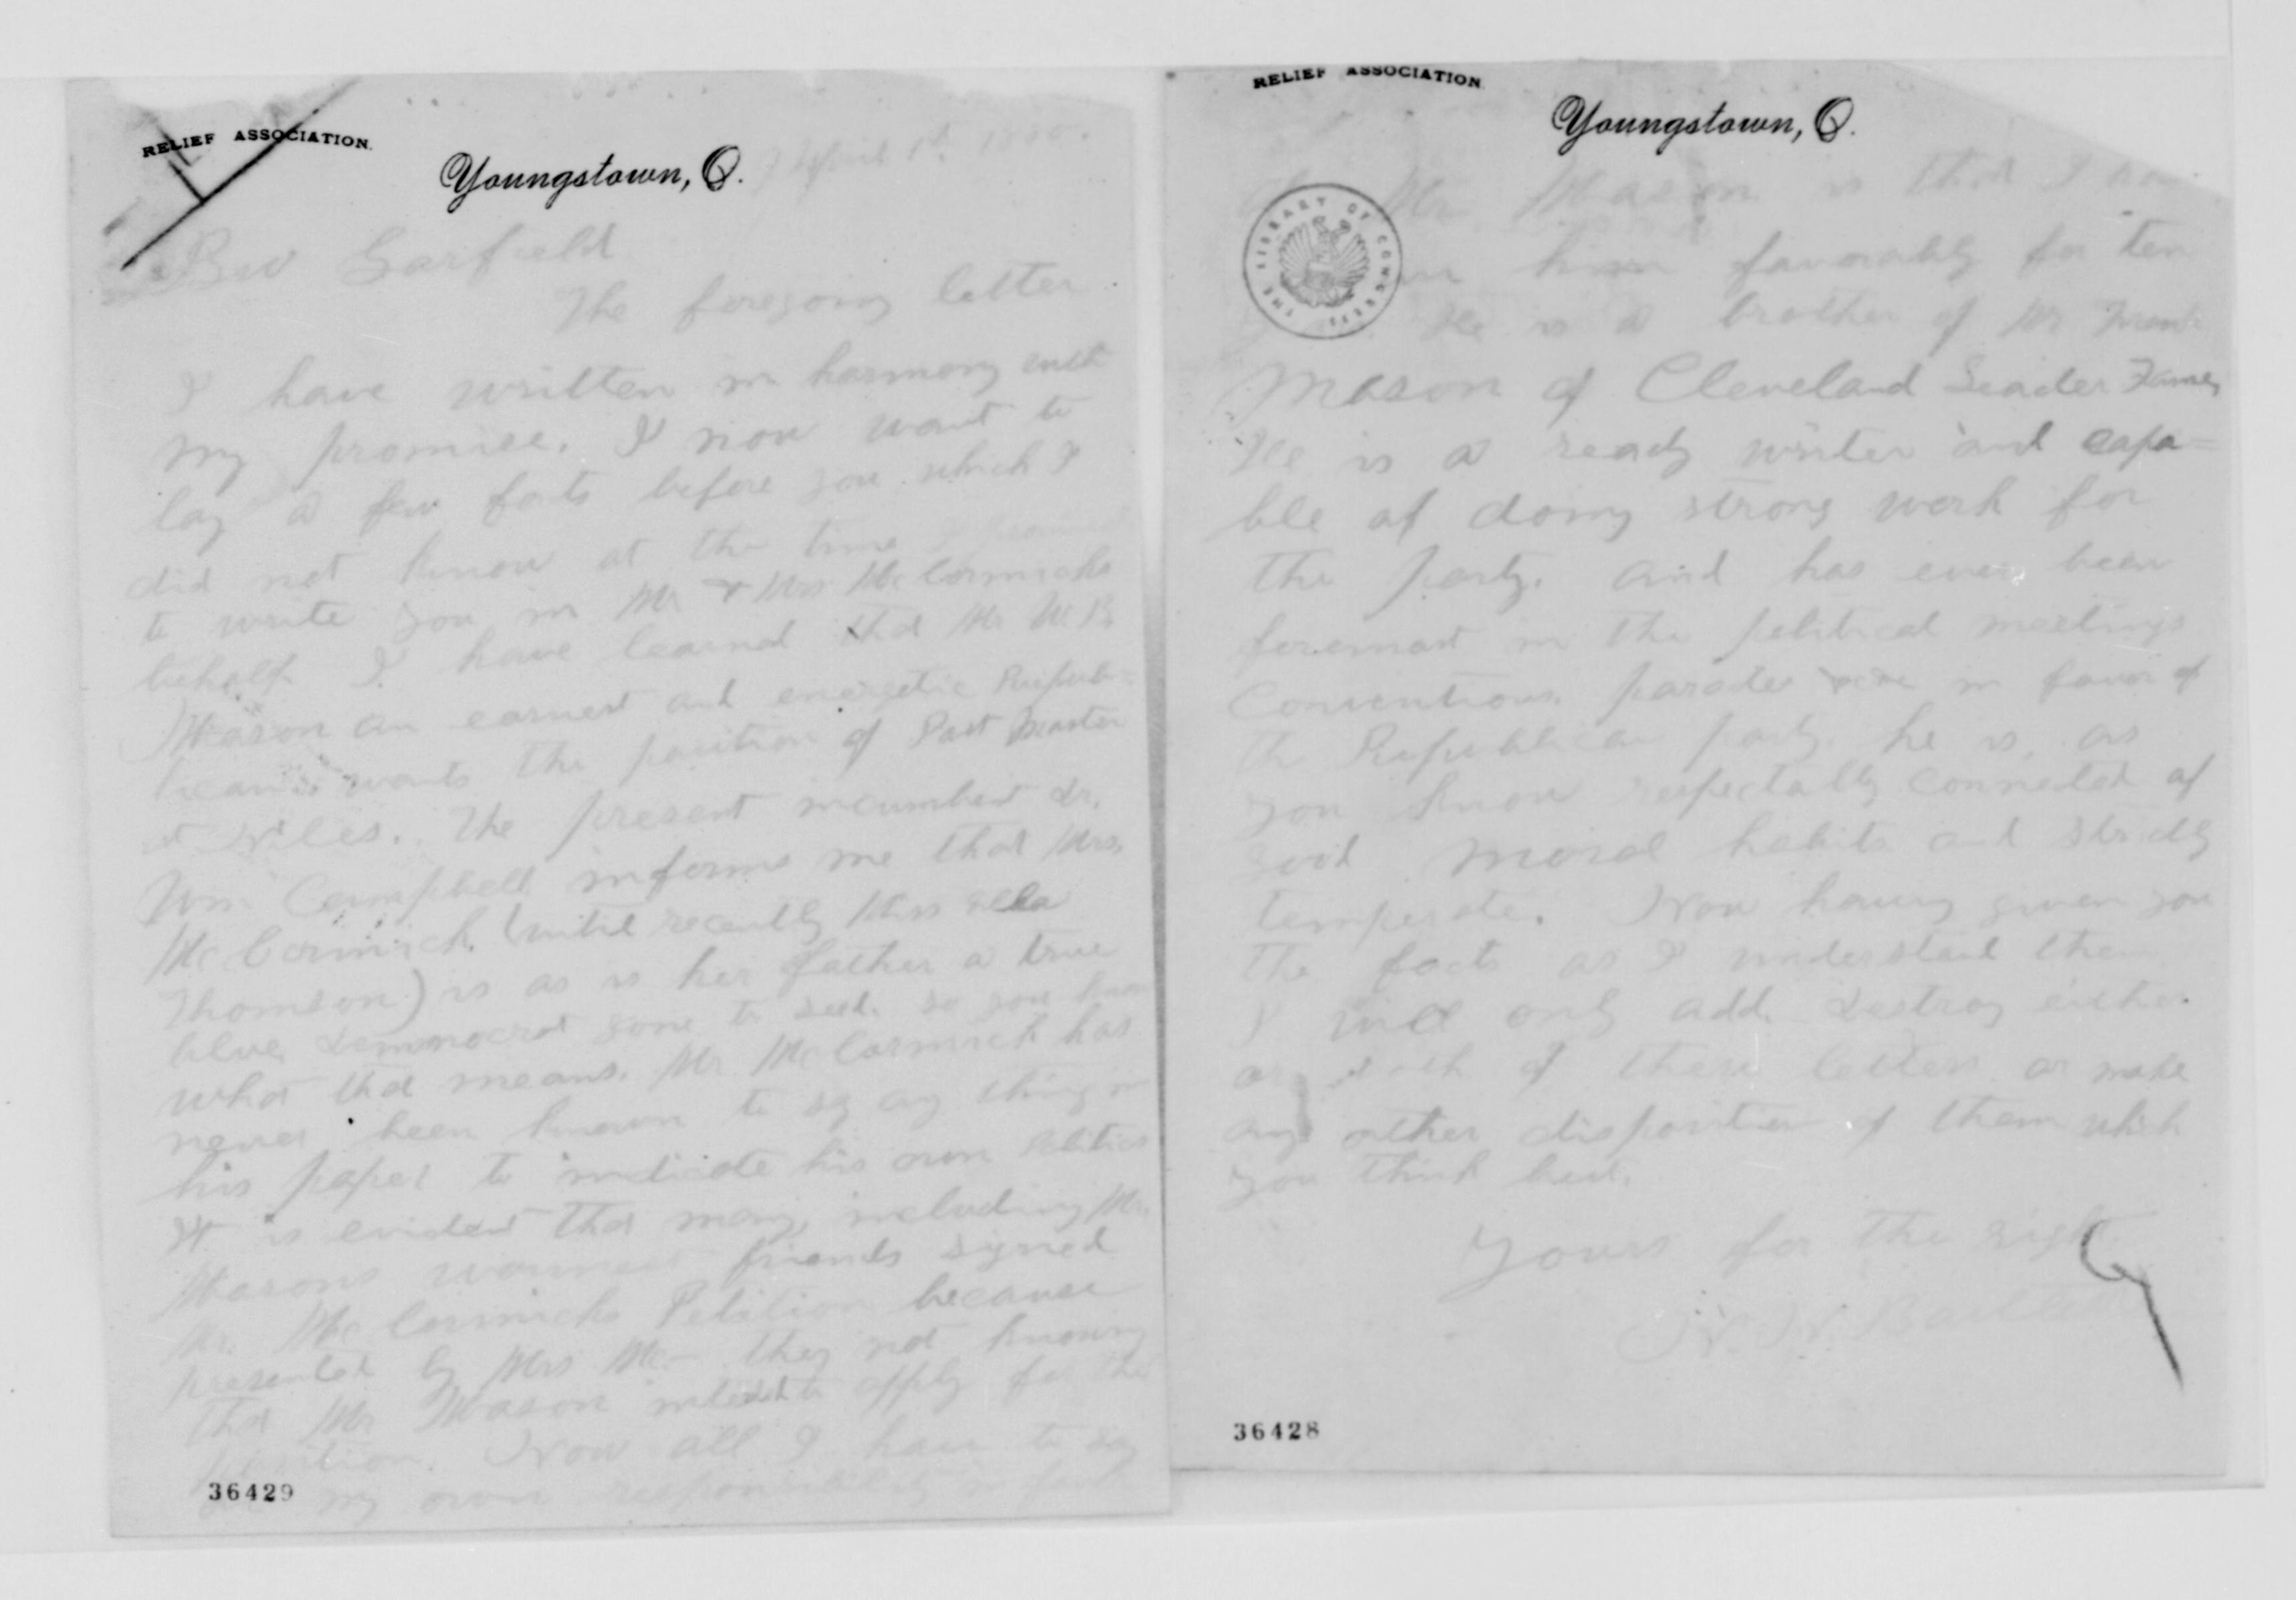 RELIEF ASSOCIATION.
Youngstown, O. April 1st 1880.
Bro Garfield
The foregoing letter
I have written in harmony with
my promise. I now want to
lay a few facts before you which I
did not know at the time I promised
to write you in Mr & Mrs McCormicks
behalf I have learned that Mr W. B.
Mason an earnest and energetic Repub-
lican wants the position of Post Master
at Niles. The present incumbent Dr.
Wm Campbell informs me that Mrs.
McCormick (until recently Miss Ella
Thomson) is as is her father a true
blue demmocrat gone to seed so you know
what that means. Mr McCormick has
never been known to say any thing in
his paper to indicate his own Politics
It is evident that many, including Mr.
Masons warmest friends signed
Mr. McCormicks Petition because
presented by Mrs Mc- they not knowing
that Mr Mason intended to apply for the
position. Now all I have to say
on my own responsibility in favor
36429
RELIEF ASSOCIATION.
Youngstown, O.
of Mr. Mason is that I have
him favorably for ten
He is a brother of Mr Frank
Mason of Cleveland Leader Fame,
He is a ready writer and capa=
ble of doing strong work for
the party. and has ever been
foremost in the political meetings
Conventions, parades &c &c in favor of
the Republican party. he is, as
you know respectably connected of
good moral habits and strictly
temperate. Now having given you
the facts as I understand them
I will only add. destroy either
or both of these letters or make
any other disposition of them which
you think best.
Yours for the right
N. N. Bartlett
THE LIBRARY OF CONGRESS
36428